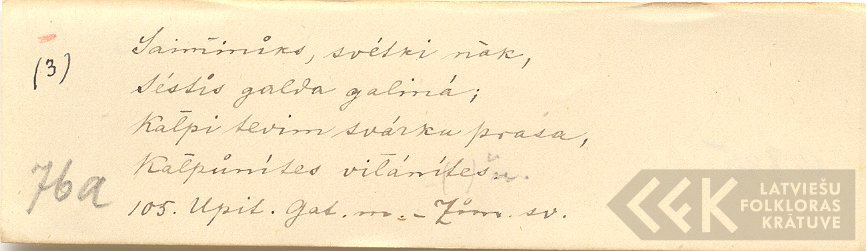 (3)
Saimīnīks, svētki nāk,
Sēstis galda galiņā;
Kalpi tevim svārku prasa,
Kalpūnītes vilānītes.
76a
105. Upit. Gat. m. – Zīm. sv.
LATVIEŠU
FOLKLORAS
KRĀTUVE